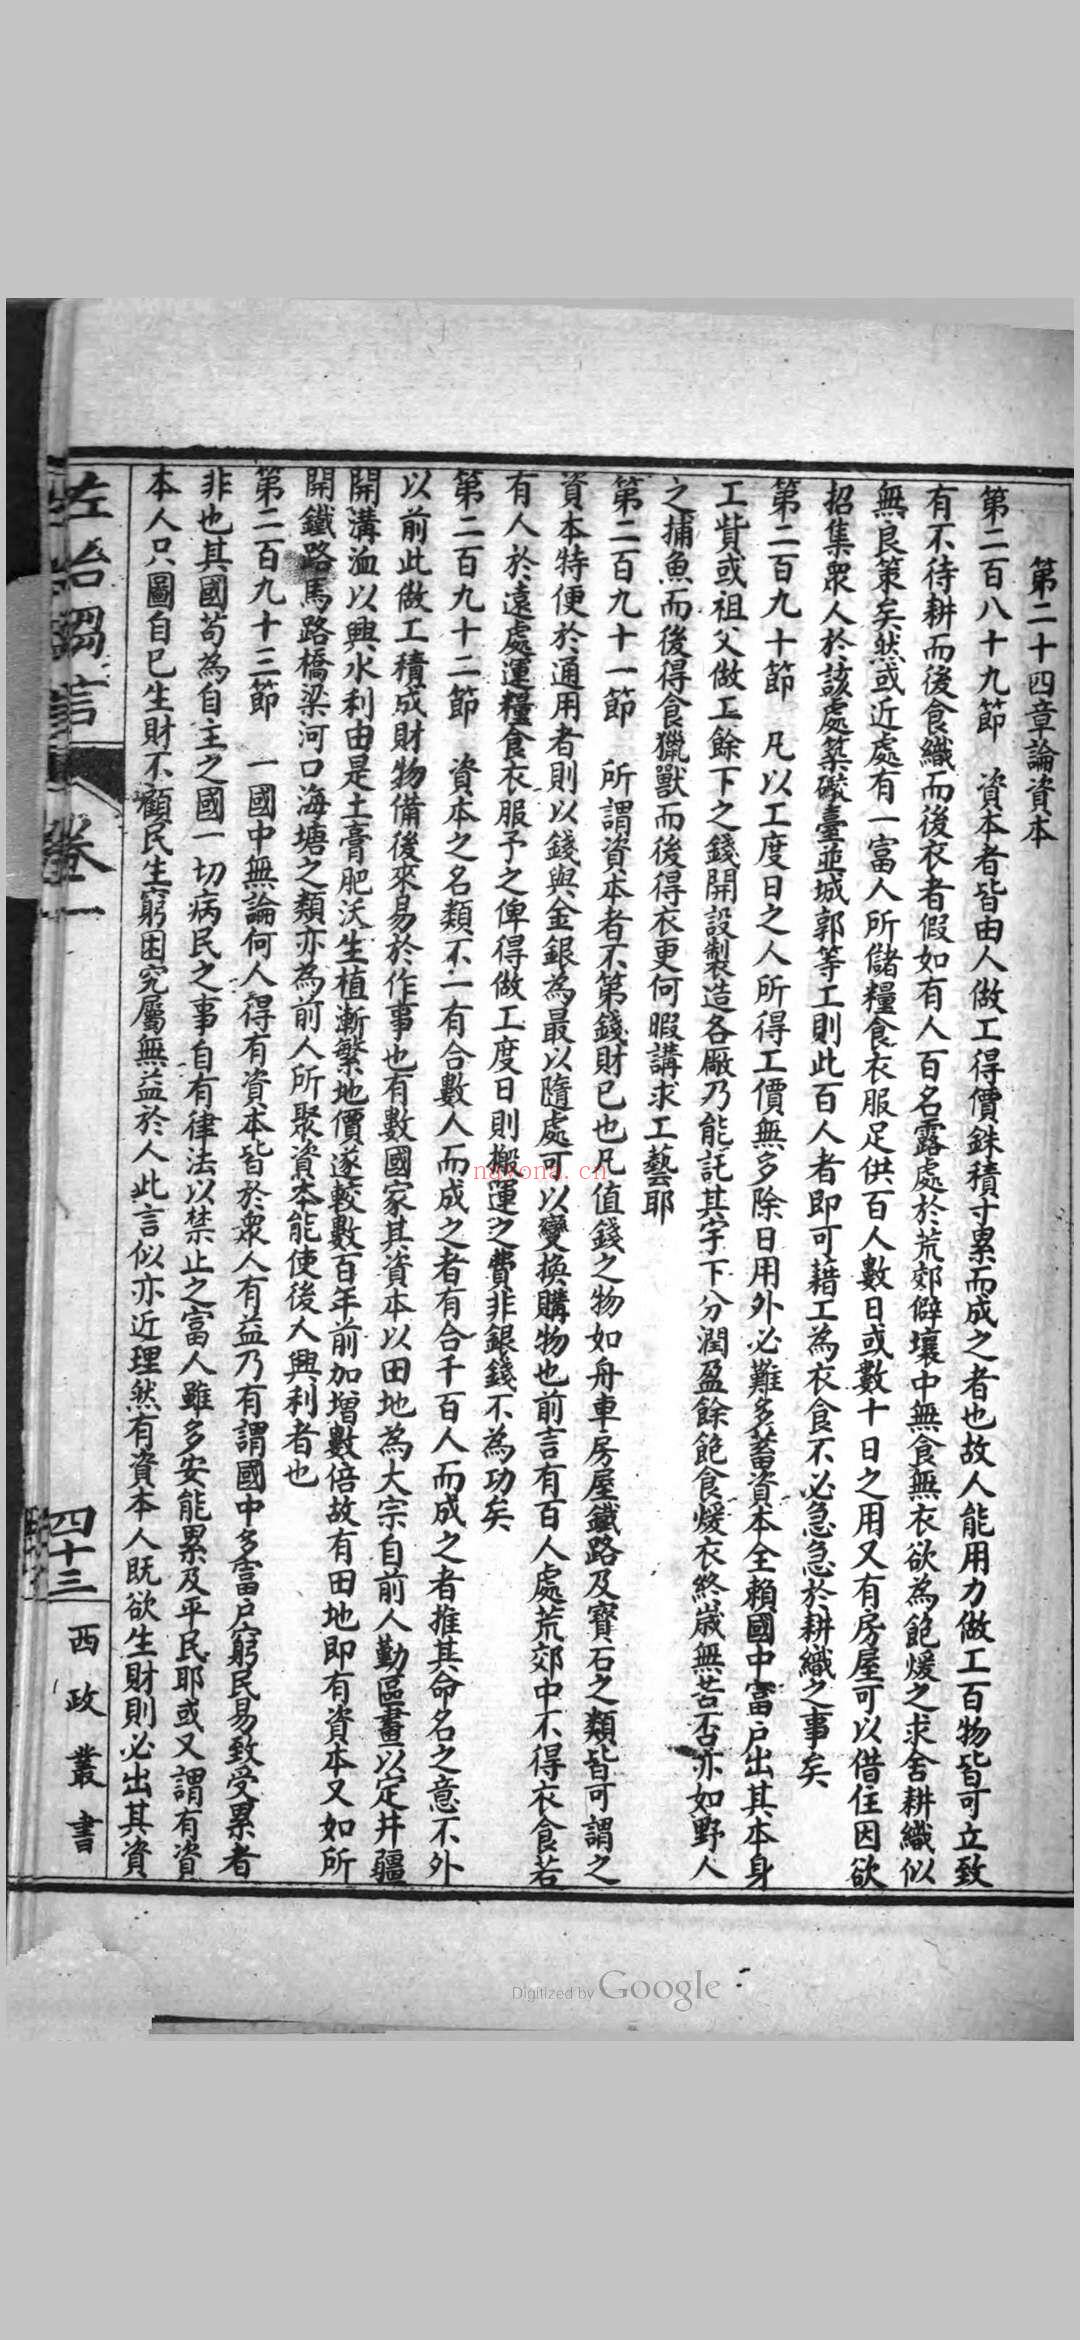 第二十四章論資本
第二百八十九節　資本者皆由人做工得價銖積寸累而成之者也故人能用力做工百物皆可立致
有不待耕而後食織而後衣者假如有人百名露處於荒郊僻壤中無食無衣欲為飽煖之求舍耕織似
無良策矣然或近處有一富人所儲糧食衣服足供百人數日或數十日之用又有房屋可以借住因欲
招集衆人於該處築礮臺並城郭等工則此百人者即可藉工為衣食不必急急於耕織之事矣
第二百九十節　凡以工度日之人所得工價無多除日用外必難多蓄資本全賴國中富户出其本身
工貲或祖父做工餘下之錢開設製造各廠乃能託其宇下分潤盈餘飽食煖衣終歲無苦否亦如野人
之捕魚而後得食獵獸而後得衣更何暇講求工藝耶
第二百九十一節　所謂資本者不第錢財已也凡值錢之物如舟車房屋鐵路及寶石之類皆可謂之
資本特便於通用者則以錢與金銀為最以隨處可以變換購物也前言有百人處荒郊中不得衣食若
有人於遠處運糧食衣服予之俾得做工度日則搬運之費非銀錢不為功矣
第二百九十二節　資本之名類不一有合數人而成之者有合千百人而成之者推其命名之意不外
以前此做工積成財物備後來易於作事也有數國家其資本以田地為大宗自前人勤區畫以定井疆
開溝洫以興水利由是土膏肥沃生植漸繁地價遂較數百年前加增數倍故有田地即有資本又如所
開鐵路馬路橋梁河口海塘之類亦為前人所聚資本能使後人興利者也
第二百九十三節　一國中無論何人得有資本皆於衆人有益乃有謂國中多富户窮民易致受累者
非也其國苟為自主之國一切病民之事自有律法以禁止之富人雖多安能累及平民耶或又謂有資
本人只圖自已生財不顧民生窮困究屬無益於人此言似亦近理然有資本人既欲生財則必出其資
佐治芻言　卷一　四十三　西政叢書
nayona.cn
Digitized by Google